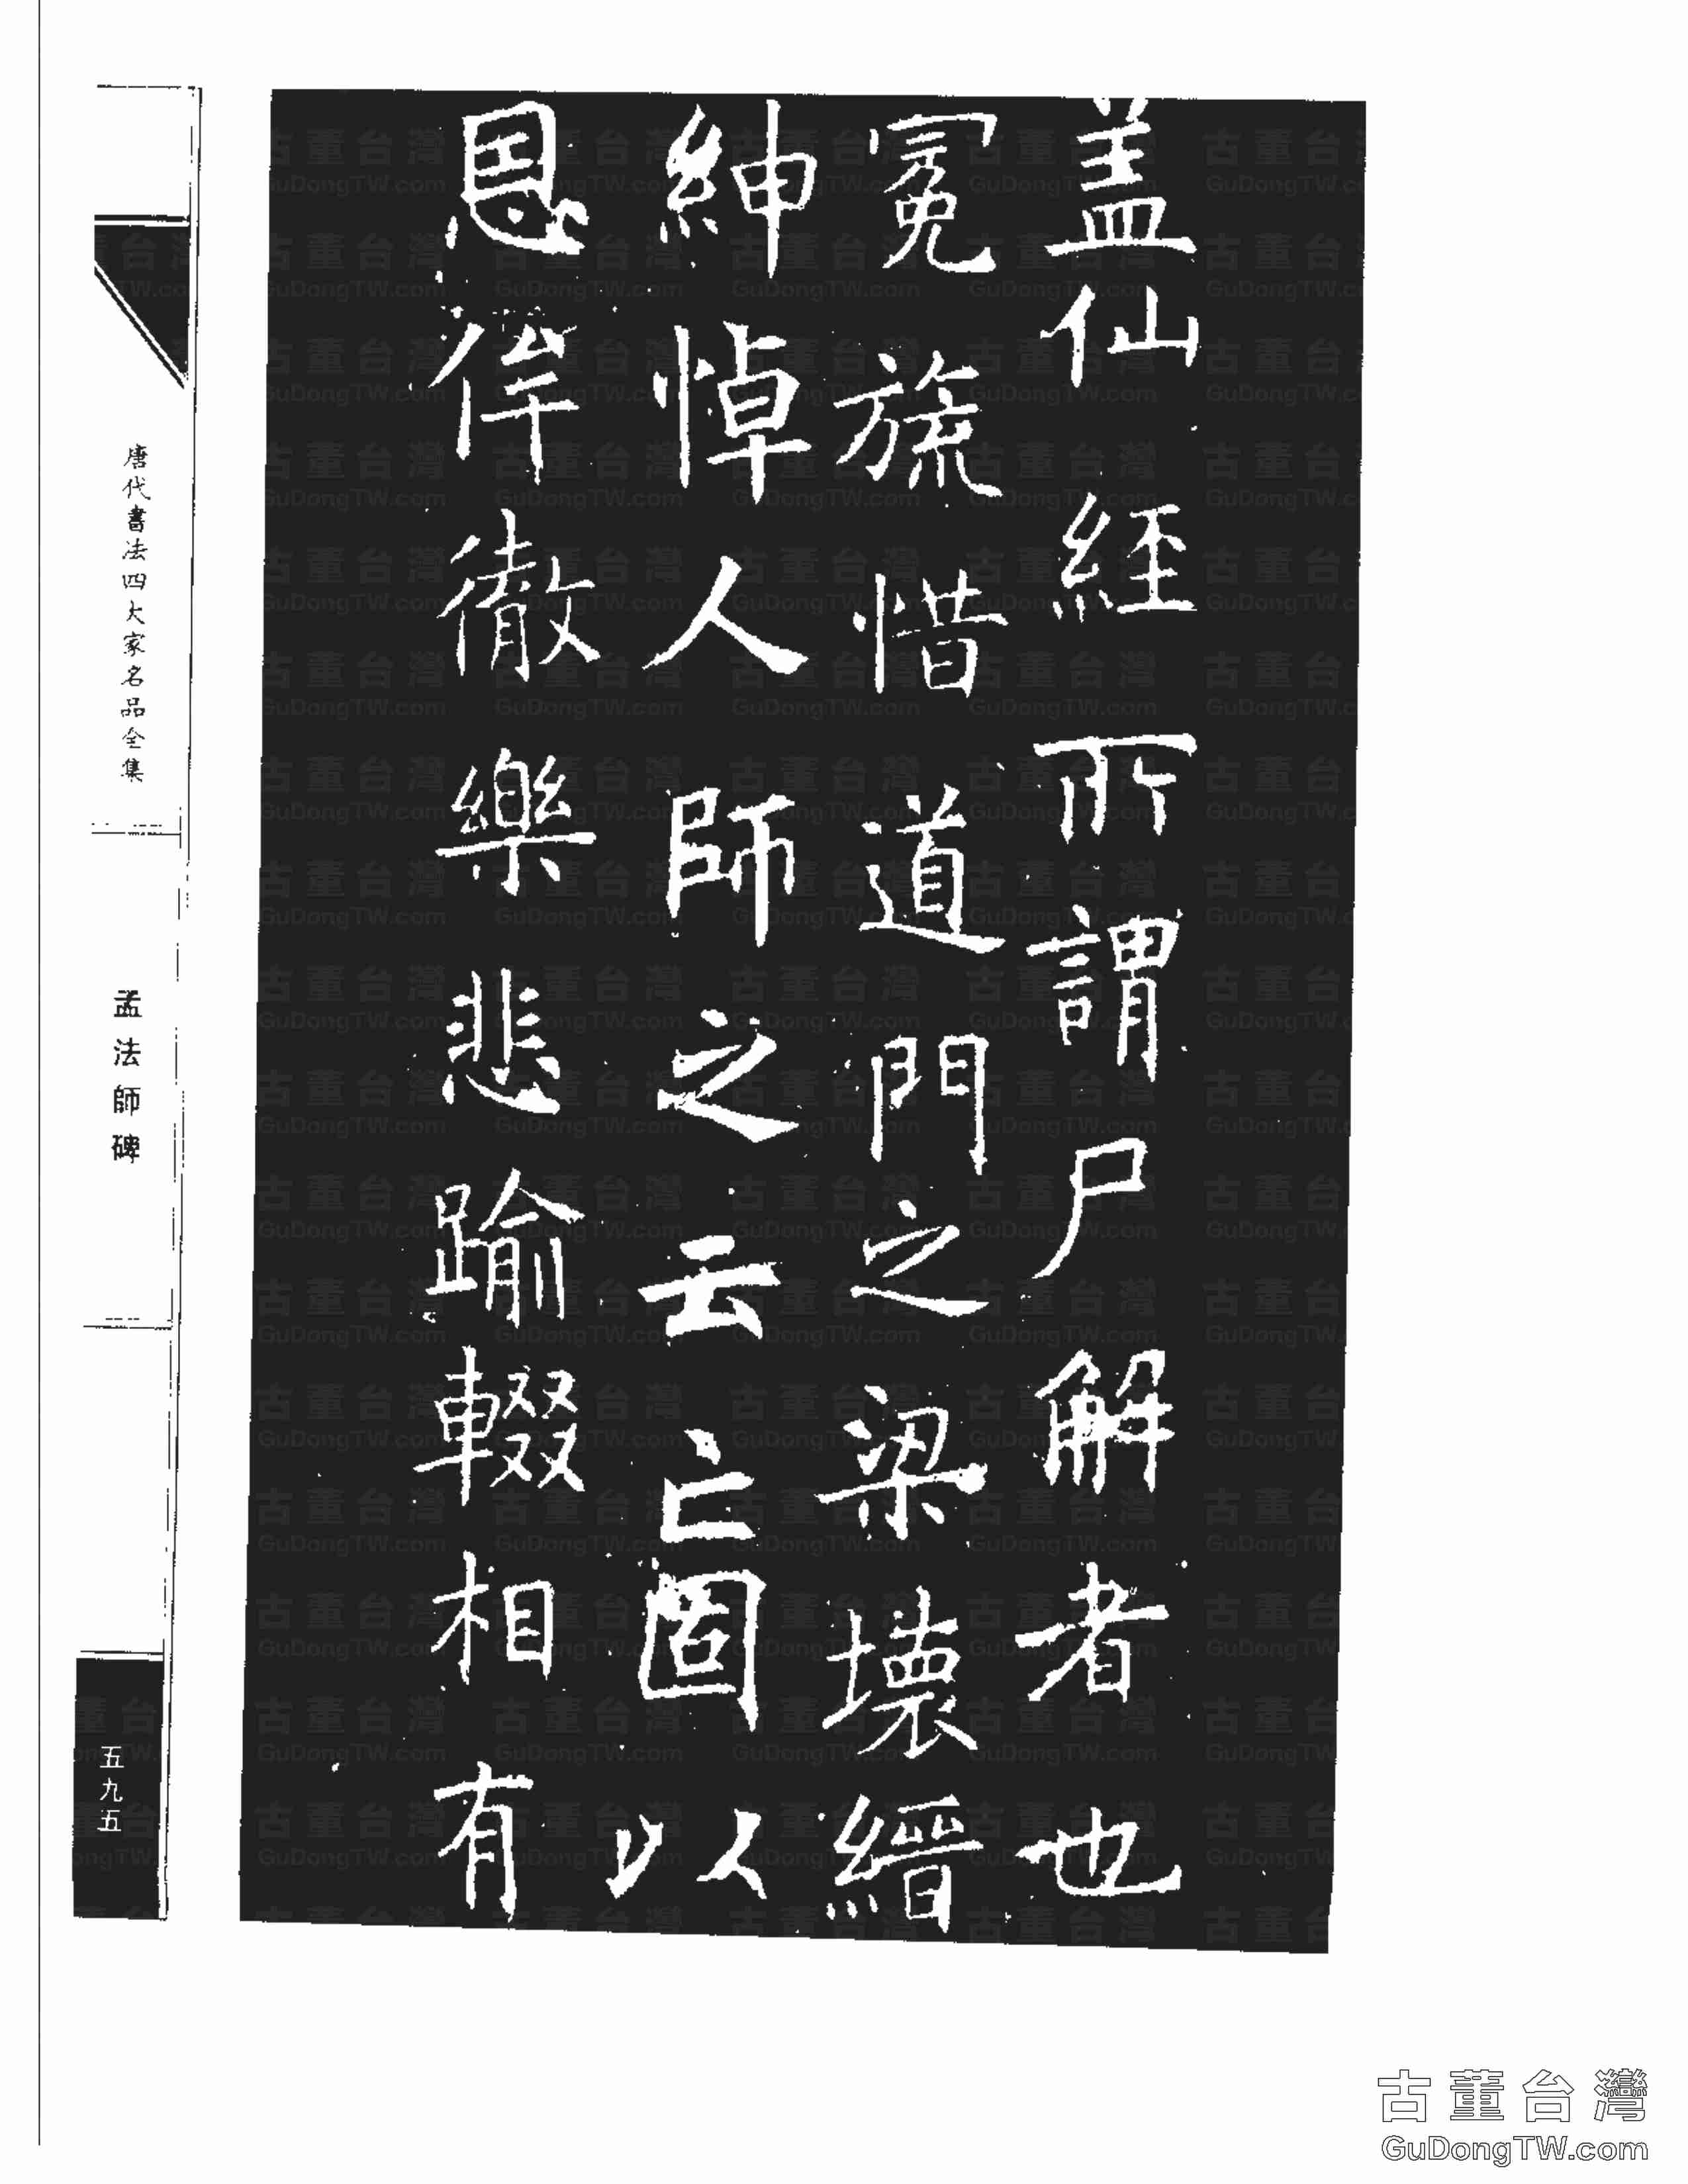 盖仙經所謂尸解者也
冕旒惜道門之梁壞縉
紳悼人師之云亡固以
恩侔徹樂悲踰輟相有
唐代書法四大家名品全集
孟法師碑
五九五
古董台灣
GuDongTW.com